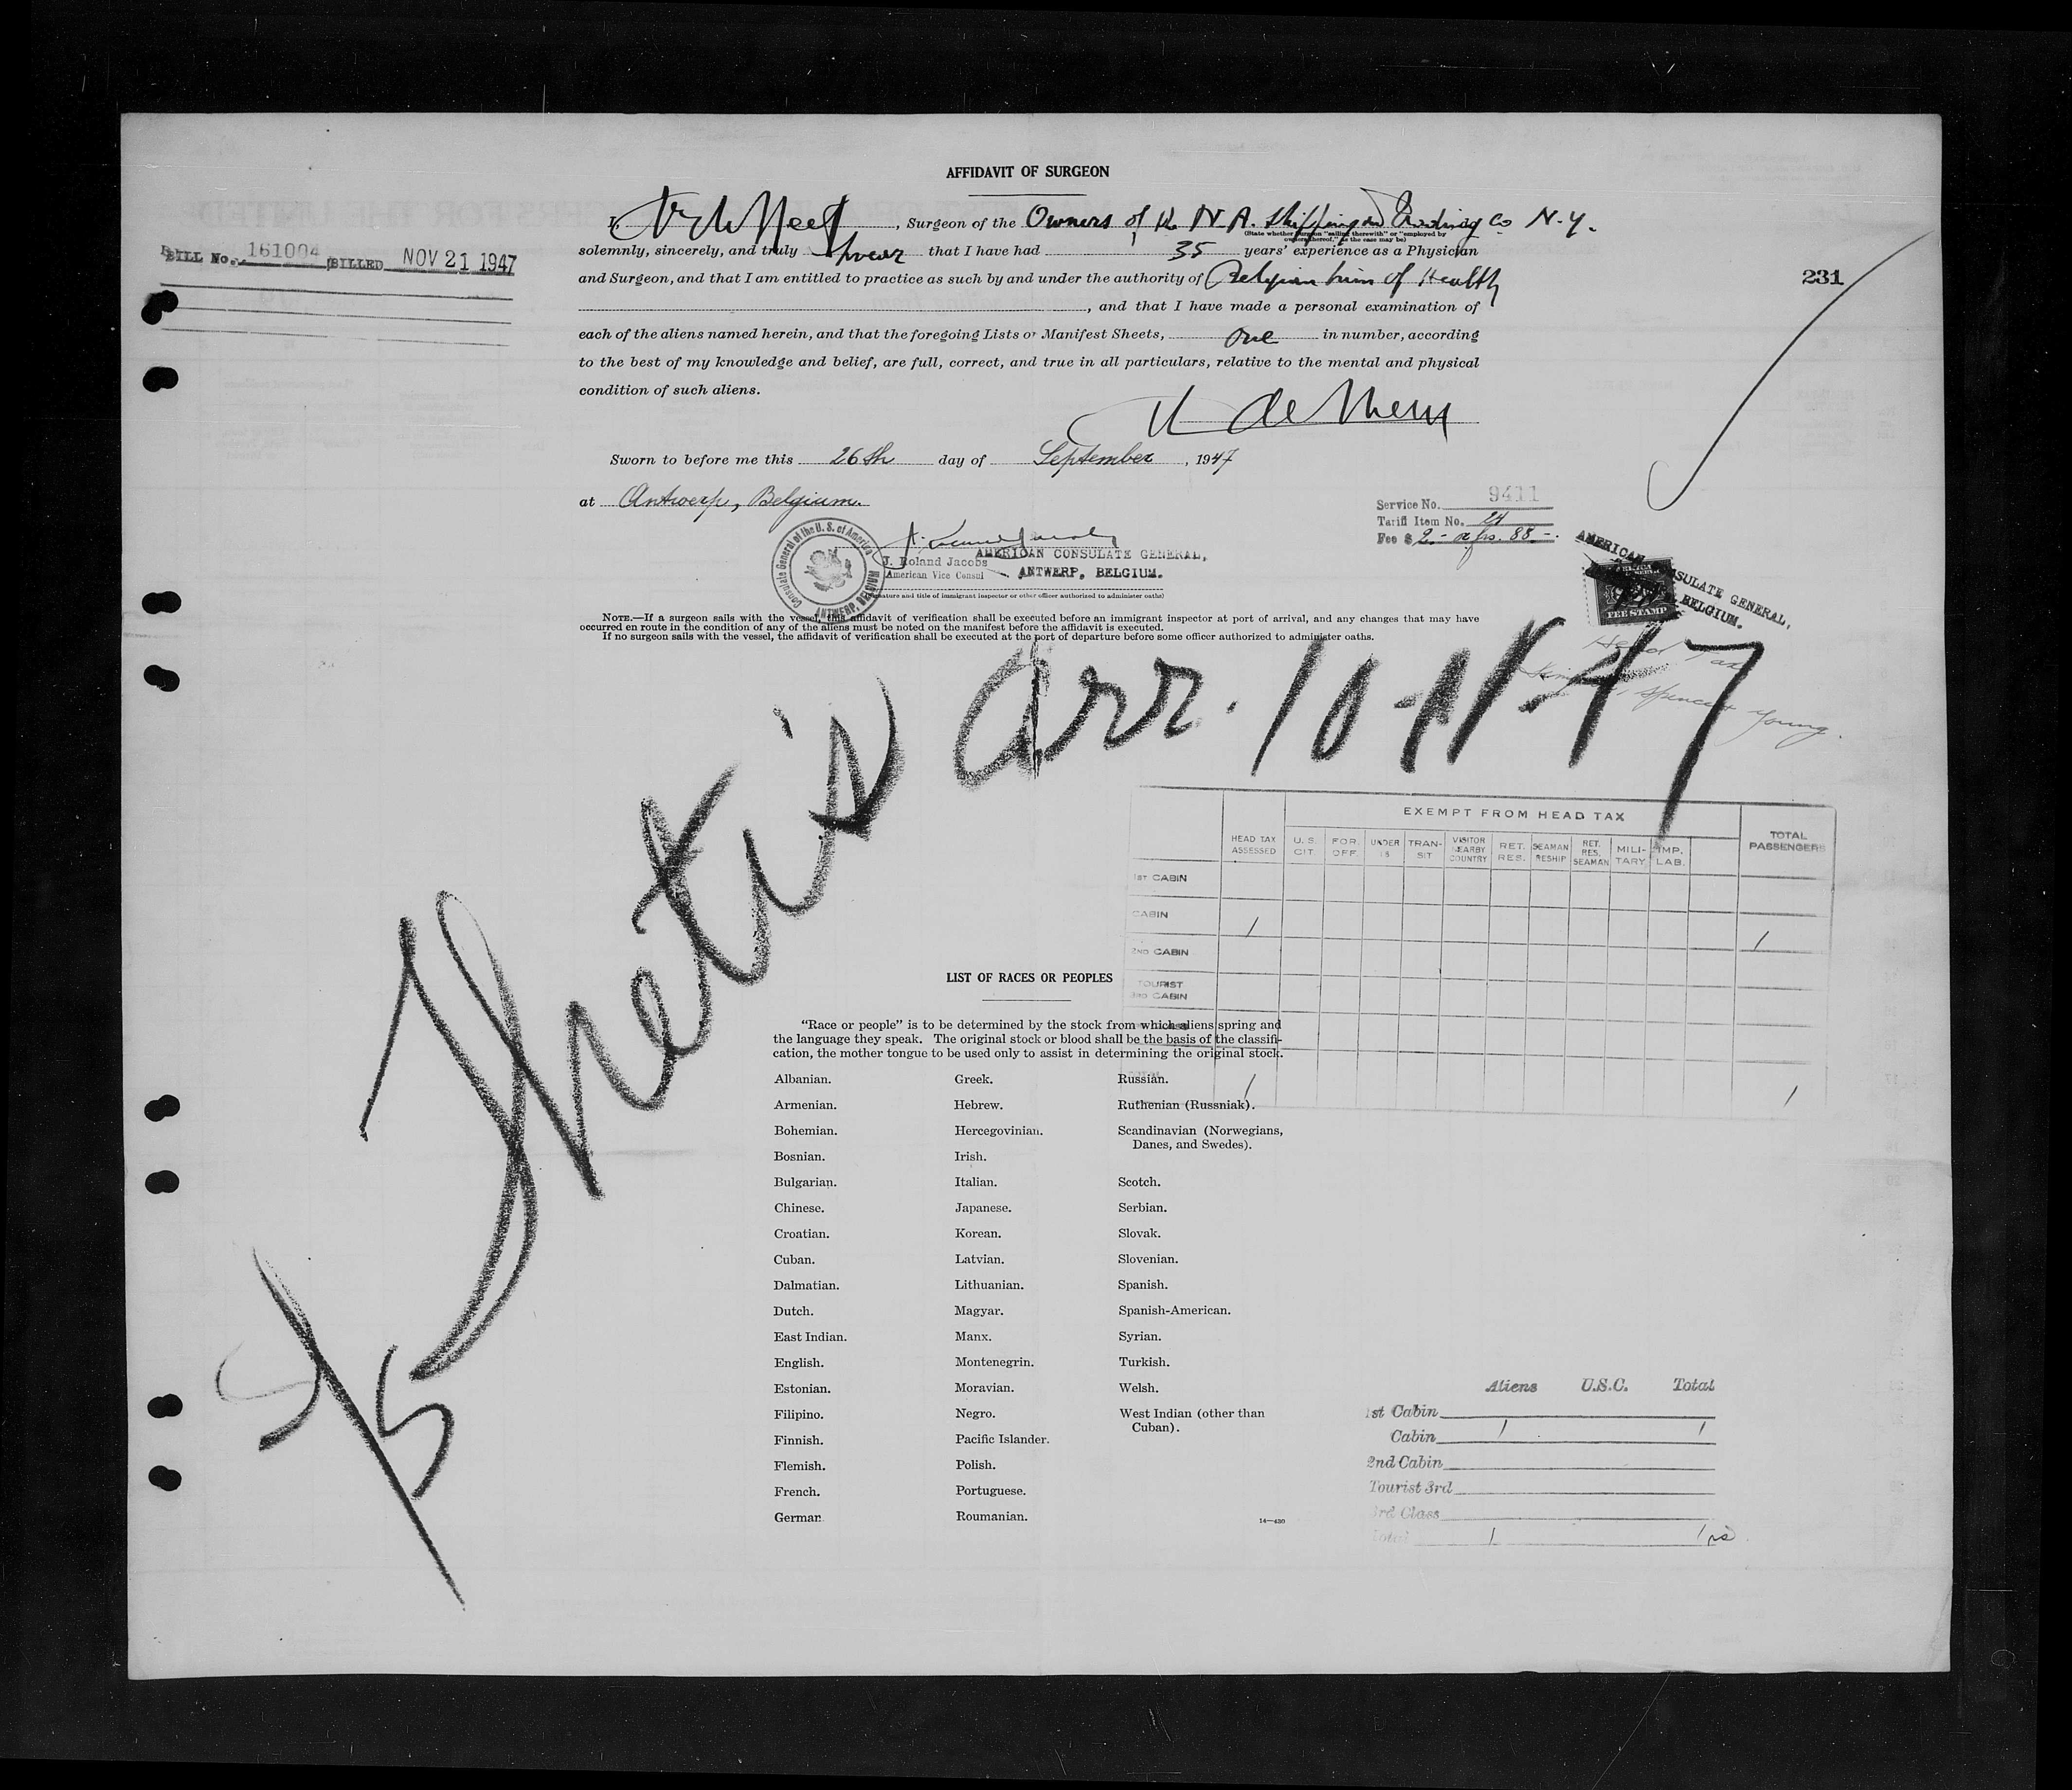 AFFIDAVIT OF SURGEON
I, , Surgeon of the Owners of the N.A. Shipping and Trading Co N.Y.
(State whether surgeon "sailing therewith" or "employed by
owners thereof," as the case may be)
solemnly, sincerely, and truly swear that I have had 35 years' experience as a Physician
and Surgeon, and that I am entitled to practice as such by and under the authority of Belgian of Health
, and that I have made a personal examination of
each of the aliens named herein, and that the foregoing Lists or Manifest Sheets, one in number, according
to the best of my knowledge and belief, are full, correct, and true in all particulars, relative to the mental and physical
condition of such aliens.
BILL No. 161004 BILLED NOV 21 1947
231
Sworn to before me this 26th day of September, 1947
at Antwerp, Belgium.
Consulate General of the U. S. of America
ANTWERP, BELGIUM
J. Roland Jacobs
American Vice Consul
AMERICAN CONSULATE GENERAL,
ANTWERP, BELGIUM.
ature and title of immigrant inspector or other officer authorized to administer oaths)
Service No. 9411
Tariff Item No. 24
Fee $ 2.- frs. 88.-
AMERICAN CONSULATE GENERAL,
BELGIUM.
FEE STAMP
NOTE.—If a surgeon sails with the vessel, this affidavit of verification shall be executed before an immigrant inspector at port of arrival, and any changes that may have
occurred en route in the condition of any of the aliens must be noted on the manifest before the affidavit is executed.
If no surgeon sails with the vessel, the affidavit of verification shall be executed at the port of departure before some officer authorized to administer oaths.
Head Tax
Spencer Young.
Arr. 10-11-47
Thetis
EXEMPT FROM HEAD TAX
HEAD TAX ASSESSED U.S. CIT. FOR. OFF. UNDER 16 TRANSIT VISITOR NEARBY COUNTRY RET. RES. SEAMAN RESHIP RET. RES. SEAMAN MILITARY IMP. LAB. TOTAL PASSENGERS
1ST CABIN
CABIN 1 1
2ND CABIN
TOURIST
3RD CABIN
1 1
LIST OF RACES OR PEOPLES
"Race or people" is to be determined by the stock from which aliens spring and
the language they speak. The original stock or blood shall be the basis of the classifi-
cation, the mother tongue to be used only to assist in determining the original stock.
Albanian. Greek. Russian.
Armenian. Hebrew. Ruthenian (Russniak).
Bohemian. Hercegovinian. Scandinavian (Norwegians,
Danes, and Swedes).
Bosnian. Irish.
Bulgarian. Italian. Scotch.
Chinese. Japanese. Serbian.
Croatian. Korean. Slovak.
Cuban. Latvian. Slovenian.
Dalmatian. Lithuanian. Spanish.
Dutch. Magyar. Spanish-American.
East Indian. Manx. Syrian.
English. Montenegrin. Turkish.
Estonian. Moravian. Welsh.
Filipino. Negro. West Indian (other than
Cuban).
Finnish. Pacific Islander.
Flemish. Polish.
French. Portuguese.
German. Roumanian.
14—430
Aliens U.S.C. Total
1st Cabin
Cabin 1 1
2nd Cabin
Tourist 3rd
3rd Class
Total 1 1